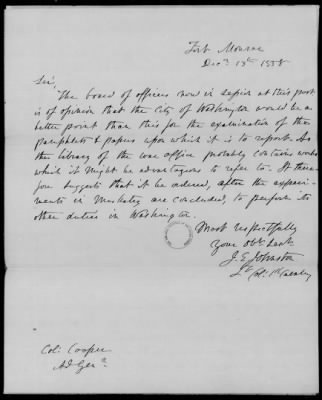 Fort Monroe
Decr 13th 1858
Sir,
The board of officers now in session at this post
is of opinion that the City of Washington would be a
better point than this for the examination of the
pamphlets & papers upon which it is to report. As
the library of the war office probably contains works
which it might be advantageous to refer to. It there-
fore suggests that it be ordered, after the experi-
ments in Musketry are concluded, to perform its
other duties in Washington.
Most respectfully
Your obt. Servt.
J. E. Johnston
Lt Col: 1st Cavalry
Col: Cooper
Ad. Genl.